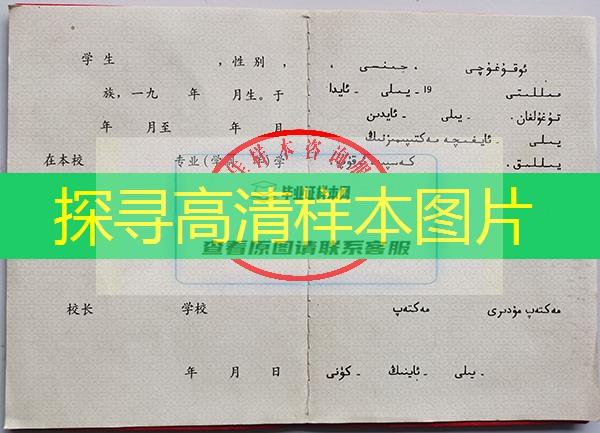 学生 ，性别 ，
族，一九 年 月生。于
年 月至 年 月
在本校 专业(学制 年)学
校长 学校
年 月 日
ئوقۇغۇچى ، جىنسى ،
مىللىتى 19 ـ يىلى ـ ئايدا
تۇغۇلغان. ـ يىلى ـ ئايدىن
يىلى ـ ئايغىچە مەكتىپىمىزنىڭ
يىللىق. كەسپىدە ئوقۇپ
مەكتەپ مۇدىرى مەكتەپ
ـ يىلى ـ ئاينىڭ ـ كۈنى
样本咨询服
毕业证样本网
探寻高清样本图片
查看原图请联系客服